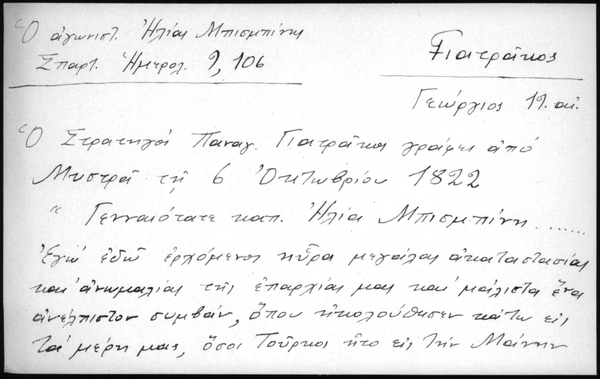 Ὁ ἀγωνιστ. Ἠλίας Μπισμπίνης
Σπαρτ. Ἡμερολ. 9, 106
Γιατράκος
Γεώργιος 19. αἰ.
Ὁ Στρατηγός Παναγ. Γιατράκος γράφει ἀπό
Μυστρᾶ τῇ 6 Ὀκτωβρίου 1822
" Γενναιότατε καπ. Ἠλία Μπισμπίνη .......
Ἐγώ ἐδῶ ἐρχόμενος ηὗρα μεγάλας ἀκαταστασίας
καί ἀνωμαλίας τῆς ἐπαρχίας μας καί μάλιστα ἕνα
ἀνέλπιστον συμβάν, ὅπου ἠκολούθησεν κάτω εἰς
τά μέρη μας, ὅσοι Τοῦρκοι ἦτο εἰς τήν Μάνην